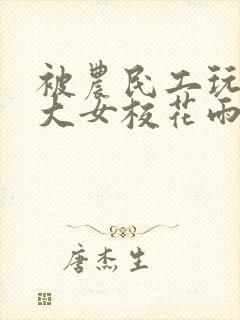 被農民工玩
大女校花雨
唐杰生